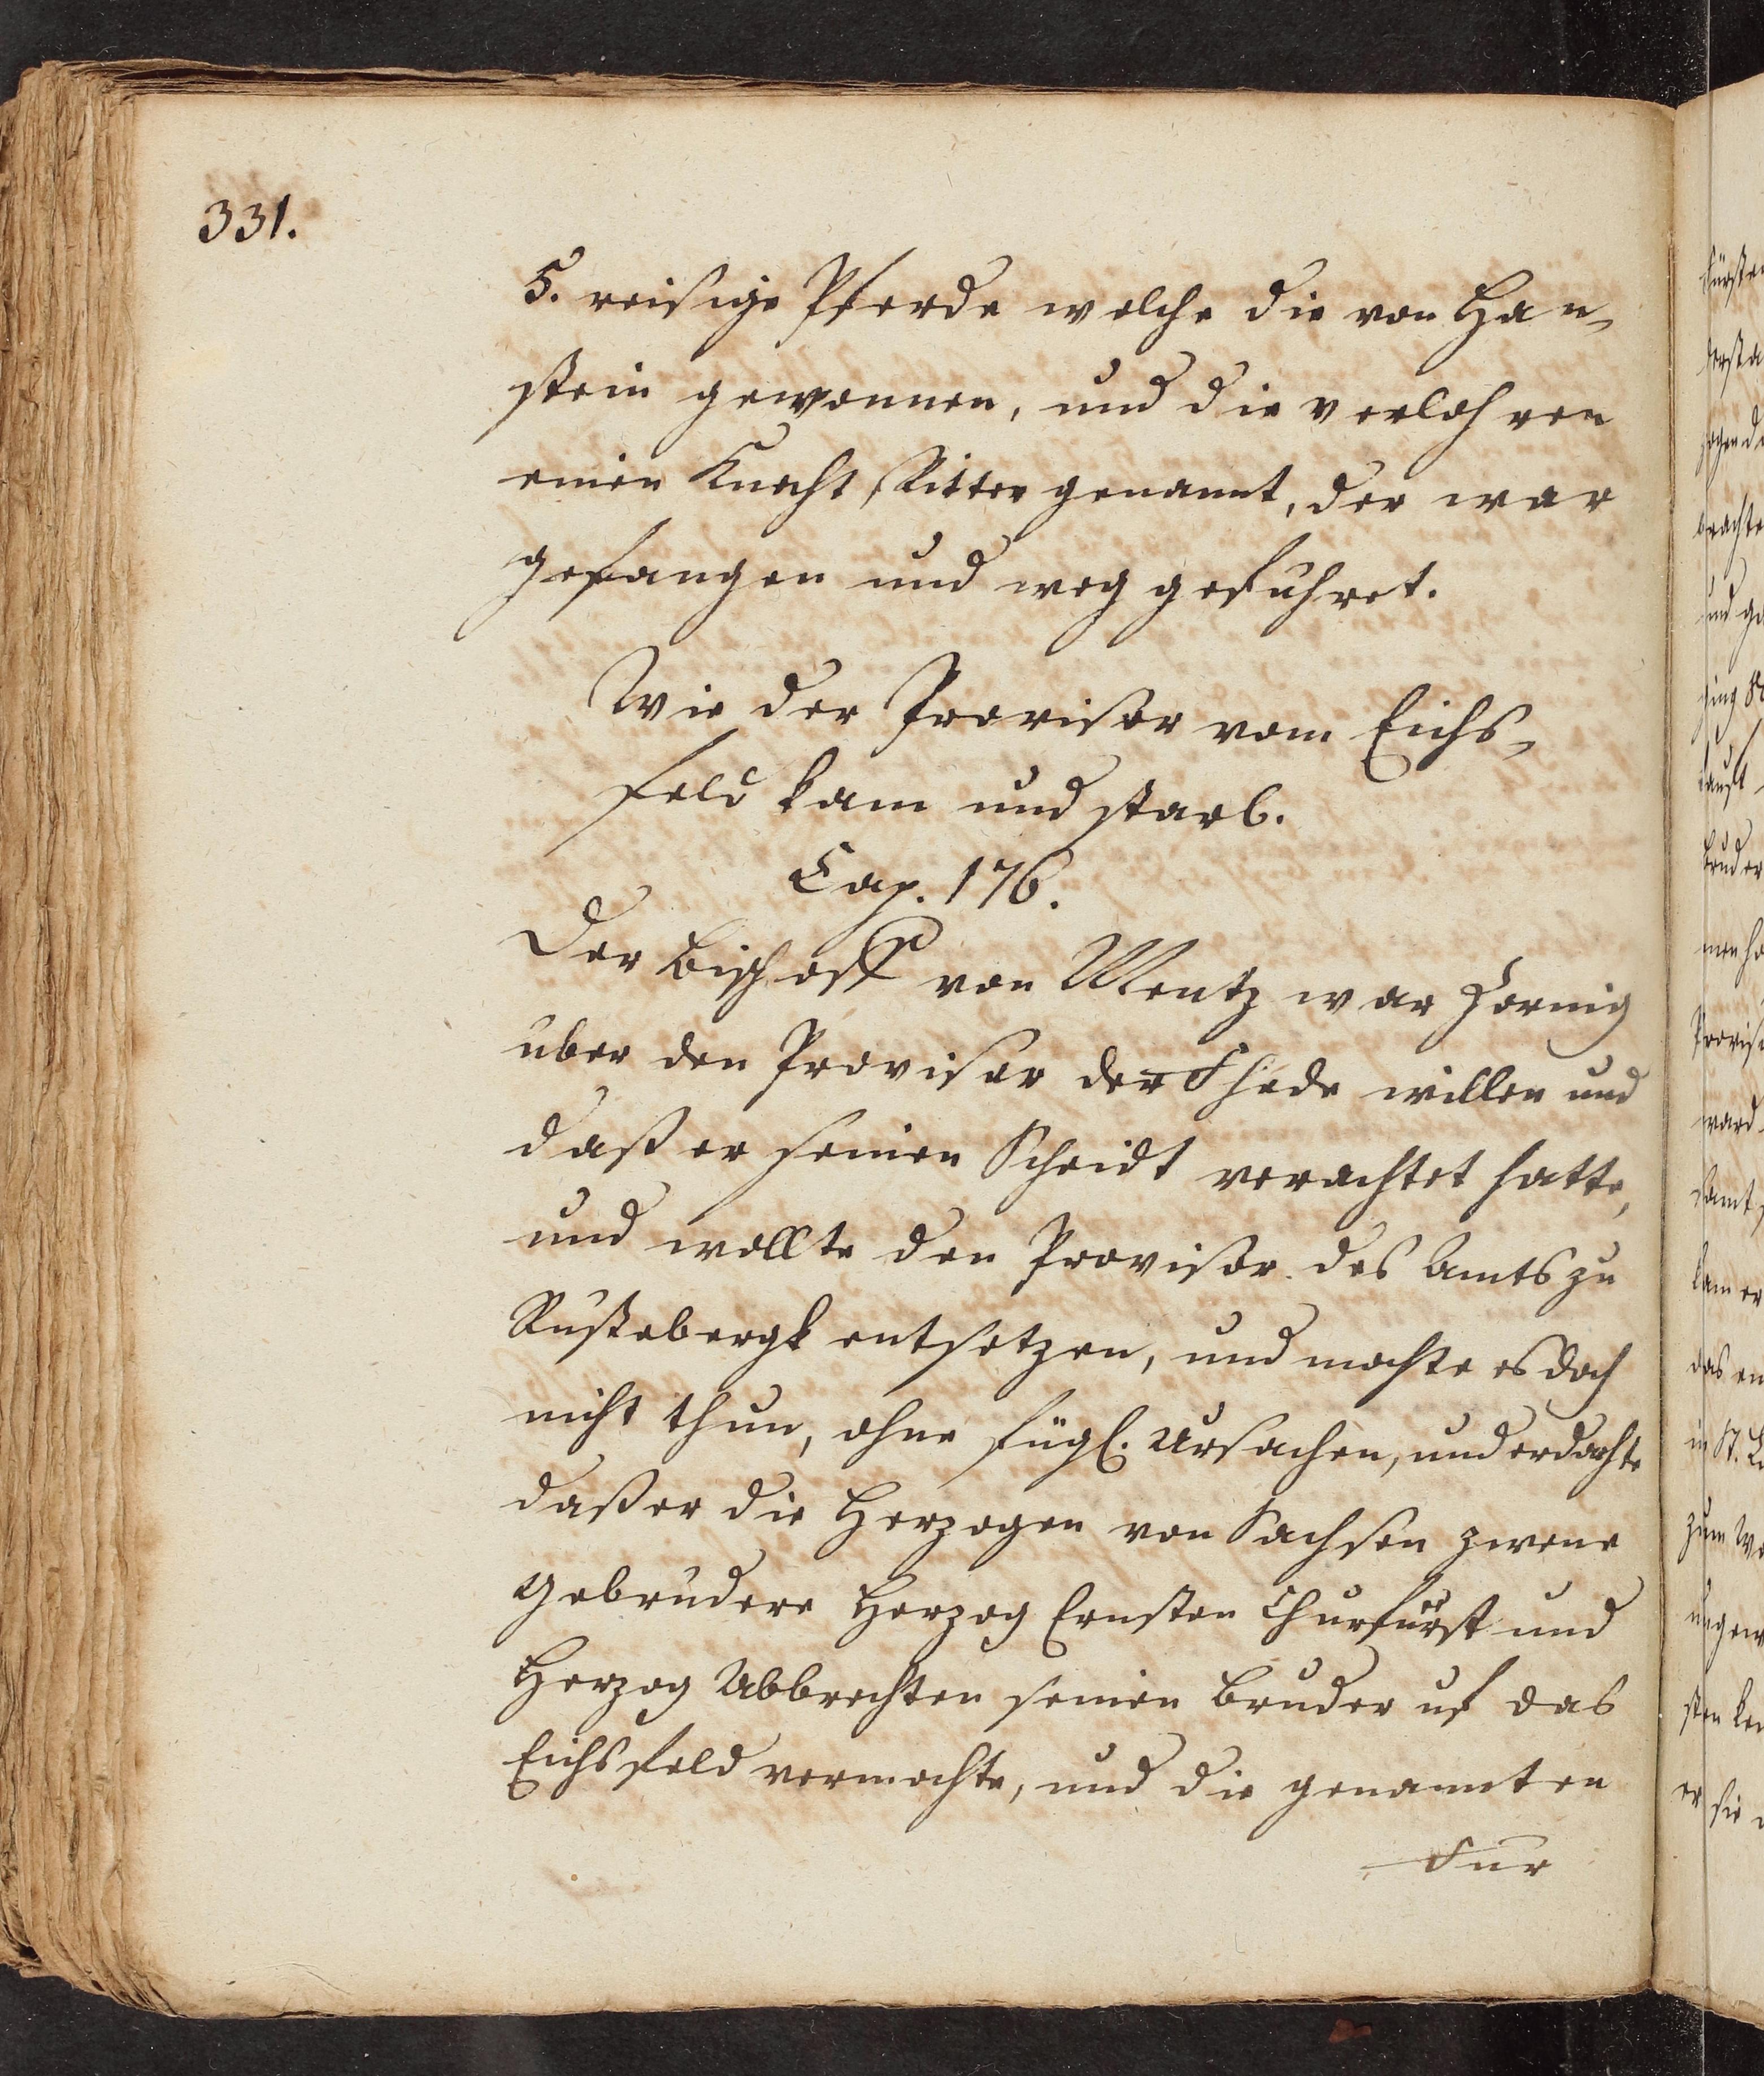 331.
5. reisige Pferde welche die von Han-
stein gewonnen, und die verlohren
einen Knecht Ritter genannt, der war
gefangen und weg geführet.
Wie der Provisor vom Eichs-
feld kam und starb.
Cap. 176.
Der Bischoff von Mentz war zornig
über den Provisor der Fhede willen und
daß er seinen Scheidt verachtet hatte,
und wollte den Provisor des Amts zu
Rustebergk entsetzen, und mochte es doch
nicht thun, ohne fügl. Ursachen, und erdachte
daß er die Herzogen von Sachsen zwene
Gebrüdere Herzog Ernsten Churfürst und
Herzog Albbrechten seinen Bruder uf das
Eichsfeld vermochte, und die genannten
Für